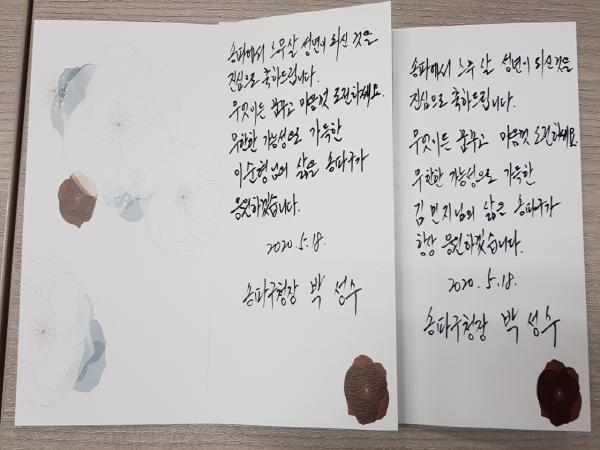 송파에서 스무살 성년이 되신 것을
진심으로 축하드립니다.
무엇이든 꿈꾸고 마음껏 도전하세요.
무한한 가능성으로 가득한
이순형님의 삶을 송파구가
응원하겠습니다.
2020. 5. 18.
송파구청장 박성수
송파에서 스무 살 성년이 되신 것을
진심으로 축하드립니다.
무엇이든 꿈꾸고 마음껏 도전하세요.
무한한 가능성으로 가득한
김민지님의 삶을 송파구가
항상 응원하겠습니다.
2020. 5. 18.
송파구청장 박성수